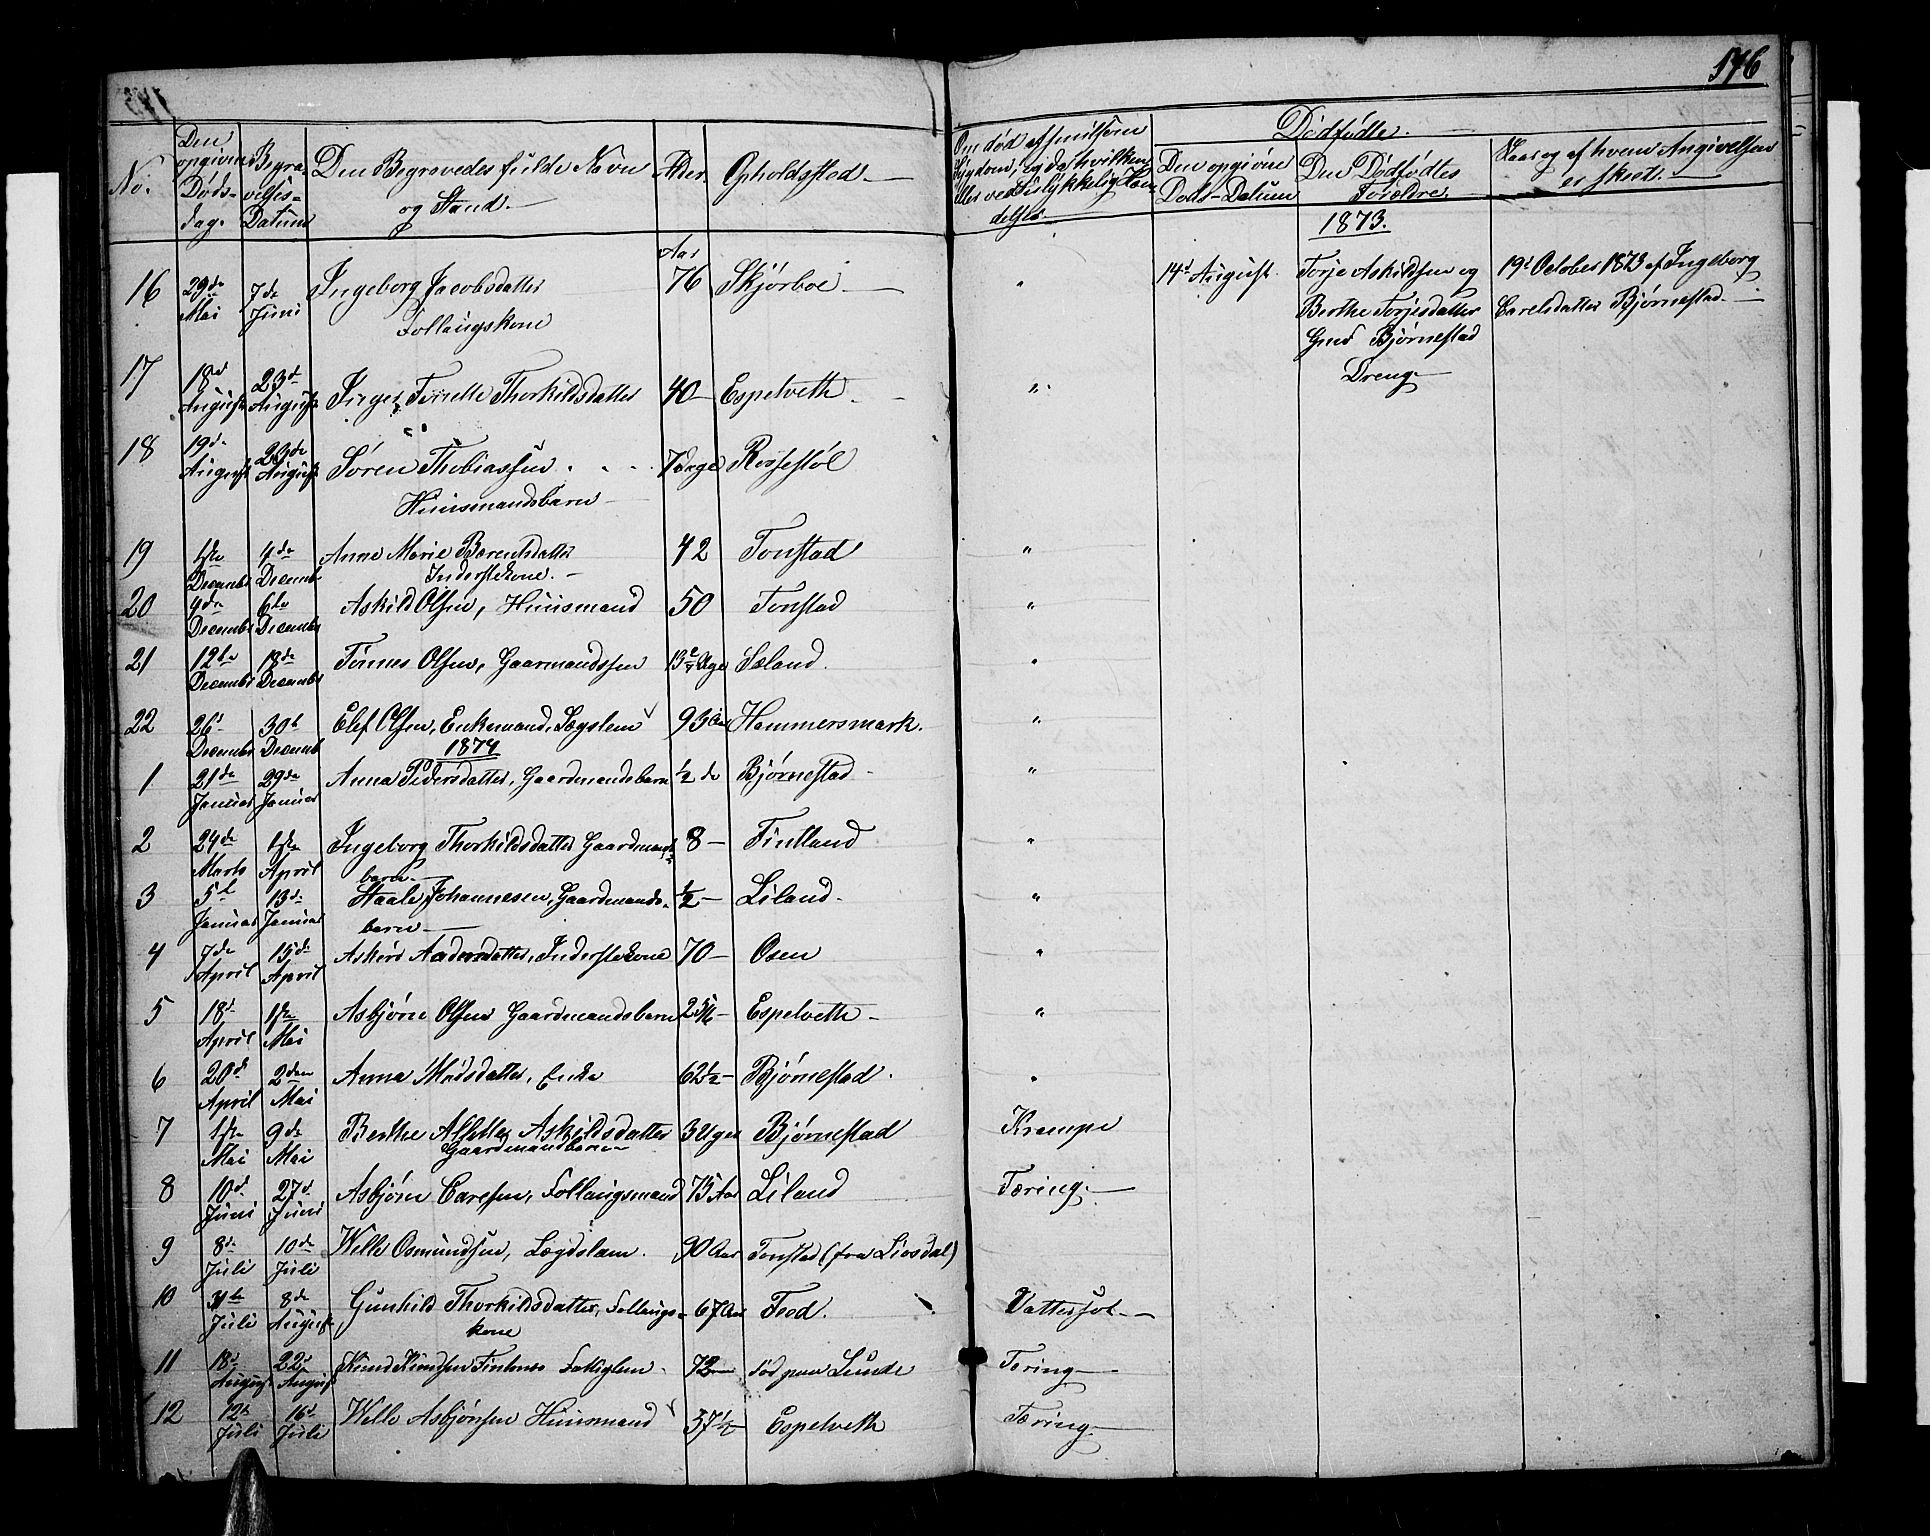 176
No.
Den opgivne Døds-dag.
Begravelses-Datum
Den Begravedes fulde Navn og Stand.
Alder.
Opholdsstad.
Om død af smitsom Sygdom, og da hvilken eller ved Ulykkelig Hændelse
Dødfødte.
Den opgivne Døds-Datum
Den Dødfødtes Forældre.
Naar og af hvem Angivelsen er skeet.
1873.
16 29de Mai 7de Juni Ingeborg Jacobsdatter Follaugskone Aar 76 Skjørboe "
14d August. Torje Askildsen og 19d October 1873 af Ingeborg
Berthe Torjesdatter Carelsdatter Bjørnestad.
Gmd Bjørnestad
Dreng
17 18d August 23d August Inger Thorkildsdatter 40 Espelveth "
18 19de August 23de August Søren Thobiassen 7 dage Rossestøl
Huusmandsbarn
19 1ste December 4de December Anne Marie Berentsdatter 42 Tonstad "
Inderstekone.
20 4de December 6te December Askild Olsen, Huusmand 50 Tonstad "
21 12te December 18de December Tønnes Olsen, Gaarmandssøn Uger Sæland. "
22 26d December 30t December Elef Olsen, Enkemand, Lægslem 93 Aar Hammersmark. "
1874
1 21de Januar 29de Januar Anna Pedersdatter, Gaardmandsbarn 1/2 do Bjørnestad "
2 24de Marts 1ste April Ingeborg Thorkildsdatter Gaardmands 8 Fintland "
barn
3 5t Januar 13de Januar Staale Johannesen, Gaardmands- 1/2 Liland. "
barn
4 7de April 15de April Askier Aadensdatter, Inderstekone 70 Osen "
5 18d April 1ste Mai Asbjørn Olsen Gaardmandsbarn Espelveth "
6 20d April 2den Mai Anna Madsdatter, Enke 62 1/2 Bjørnestad. "
7 1ste Mai 9de Mai Berthe Askildsdatter 3 Uger Bjørnestad Krampe
Gaardmandsbarn
8 10d Juni 27d Juni Asbjørn Carelsen, Follaugsmand 75 Aar Liland Tæring.
9 8de Juli 10de Juli Welle Osmundsen, Lægdslem. 90 Aar Tonstad (fra Liosdal)
10 31te Juli 8de August Gunhild Thorkildsdatter, Follaugs- 67 Aar Feod. Vattersot
kone
11 18d August 22d August Knud Knudsen Fintland Fattiglem 72 død paa Lunde Tæring
12 12t Juli 16d Juli Welle Asbjørnsen Huusmand 37 1/2 Espelveth Tæring.